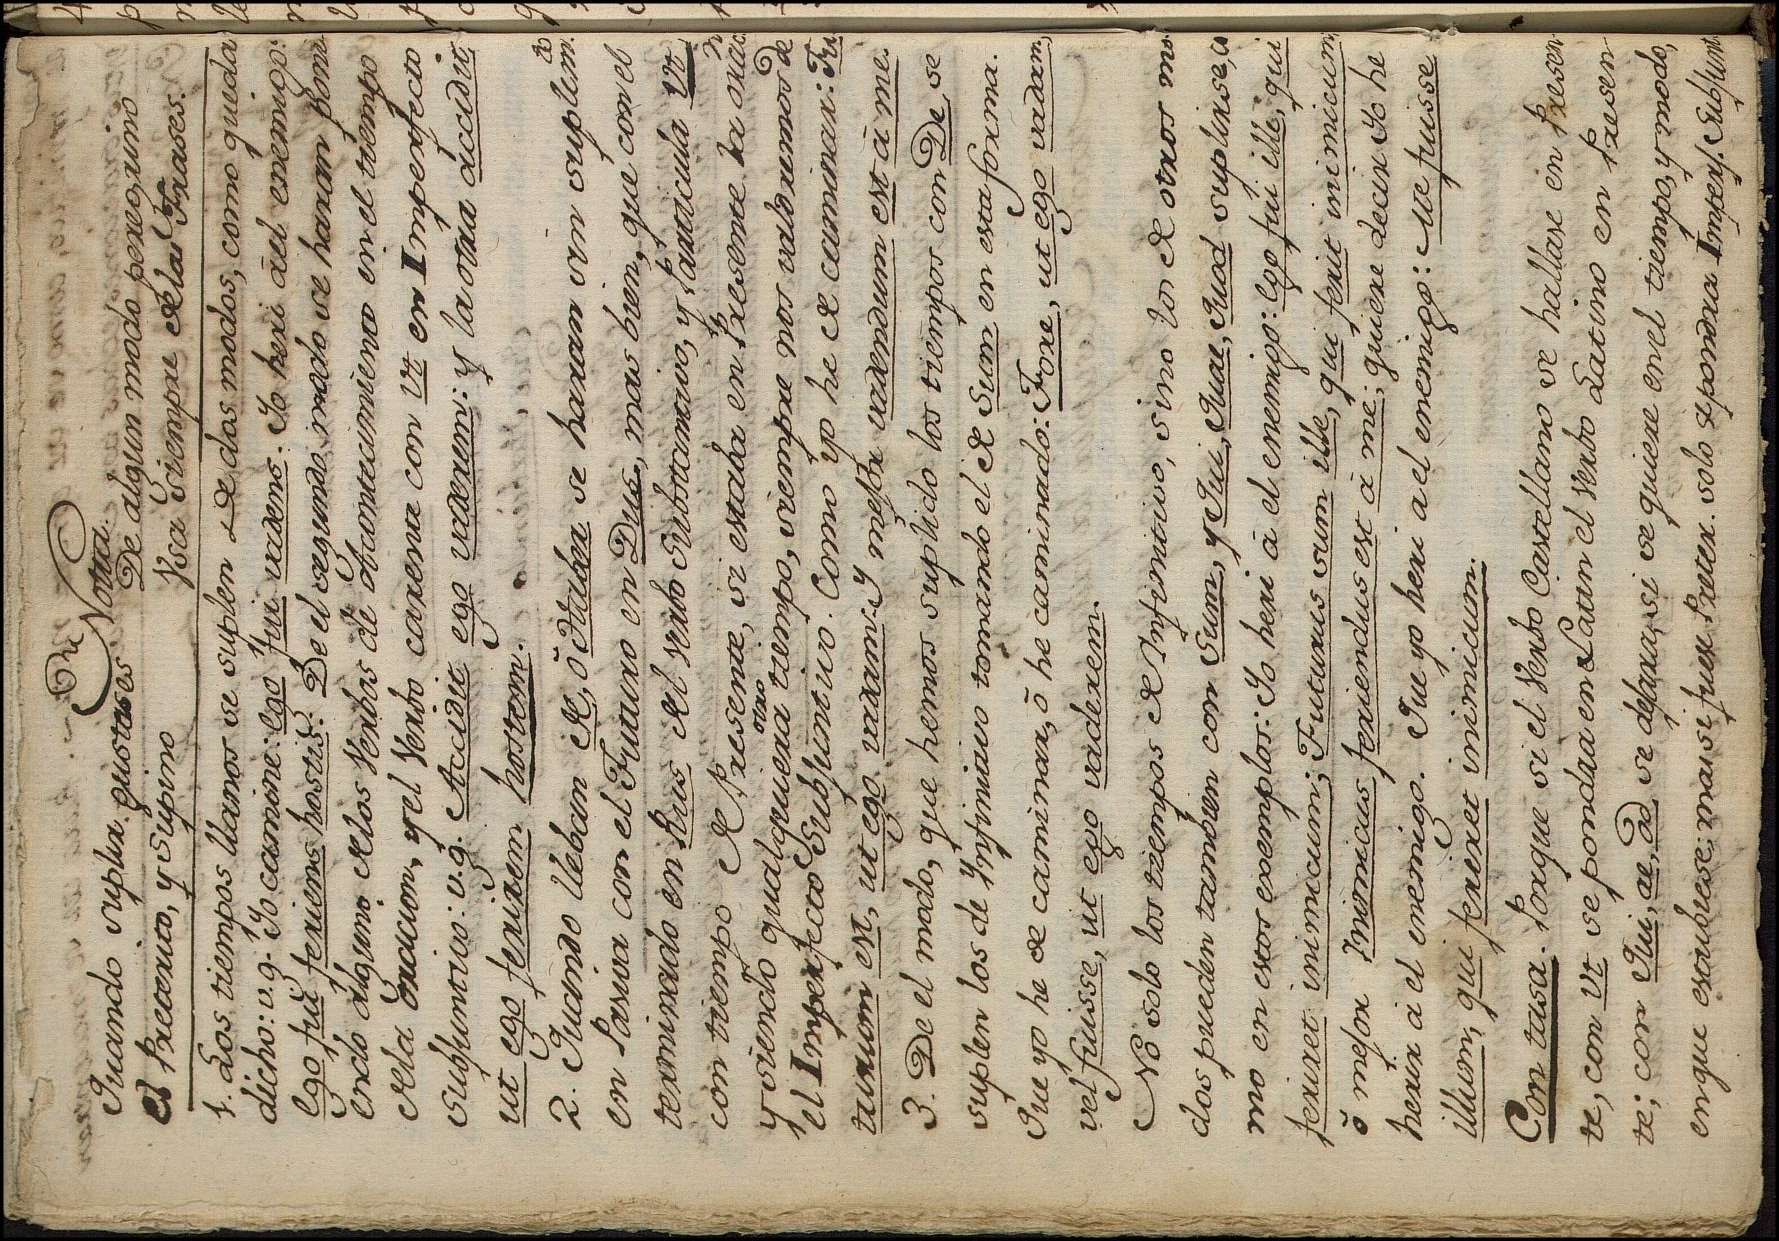 Nota.
Quando suplir gustases De algun modo peregrino
el Preterito, y Supino Vsa siempre de las Frases.
1. Los tiempos llanos se suplen de dos modos, como quida
dicho: v.g. Yo caminè: Ego fui vadens: Yo heri ael enemigo:
Ego fuì feriens hostis: De el segundo modo se haran poni
endo alguno delos Verbos de Acontecimiento en el tiempo
dela oracion, y el Verbo carente con Vt en Imperfecto
subjuntivo: v.g. Accidit ego vaderem: y la otra accidit
ut ego ferirem hostem.
2. Quando lleban de, ò Haber se haran sin suplem.to
en Pasiva con el Futuro en Dus, mas bien, que con el
terminado en Rus del verbo Substantivo, y Particula Vt,
con tiempo de Presente, si estaba en Presente la orac.n
y siendo qualquiera otro tiempo, siempre nos valdramos de
el Imperfecto Subjuntivo. Como yo he de caminar: Fu
turum est, ut ego vadam: Y mejor vadendum est à me.
3. De el modo, que hemos suplido los tiempos con De se
suplen los de Infinitivo tomando el de Sum en esta forma.
Que yo he de caminar, ò he caminado: Fore, ut ego vadam,
vel fuisse, ut ego vaderem.
No solo los tiempos de Infinitivo, sino los de otros mo
dos pueden tambien con Sum, y Qui, Quae, Quod suplirse, co
mo en estos exemplos: Yo heri à el enemigo: Ego fui ille, qui
feriret inimicum; Futurus sum ille, qui feriat inimicum
ò mejor Inimicus feriendus est à me; quiere decir Yo he
herir à el enemigo. Que yo heri a el enemigo: Me fuisse
illum, qui feriret inimicum.
Con tasa. Porque si el Verbo Castellano se hallase en Presen
te, con Vt se pondra en Latin el Verbo Latino en Presen
te; con Qui, ae, od se dejara, si se quiere en el tiempo, y modo,
enque estubiese; mas si fuese Preter. solo se pondra Imperf. Subjunt.